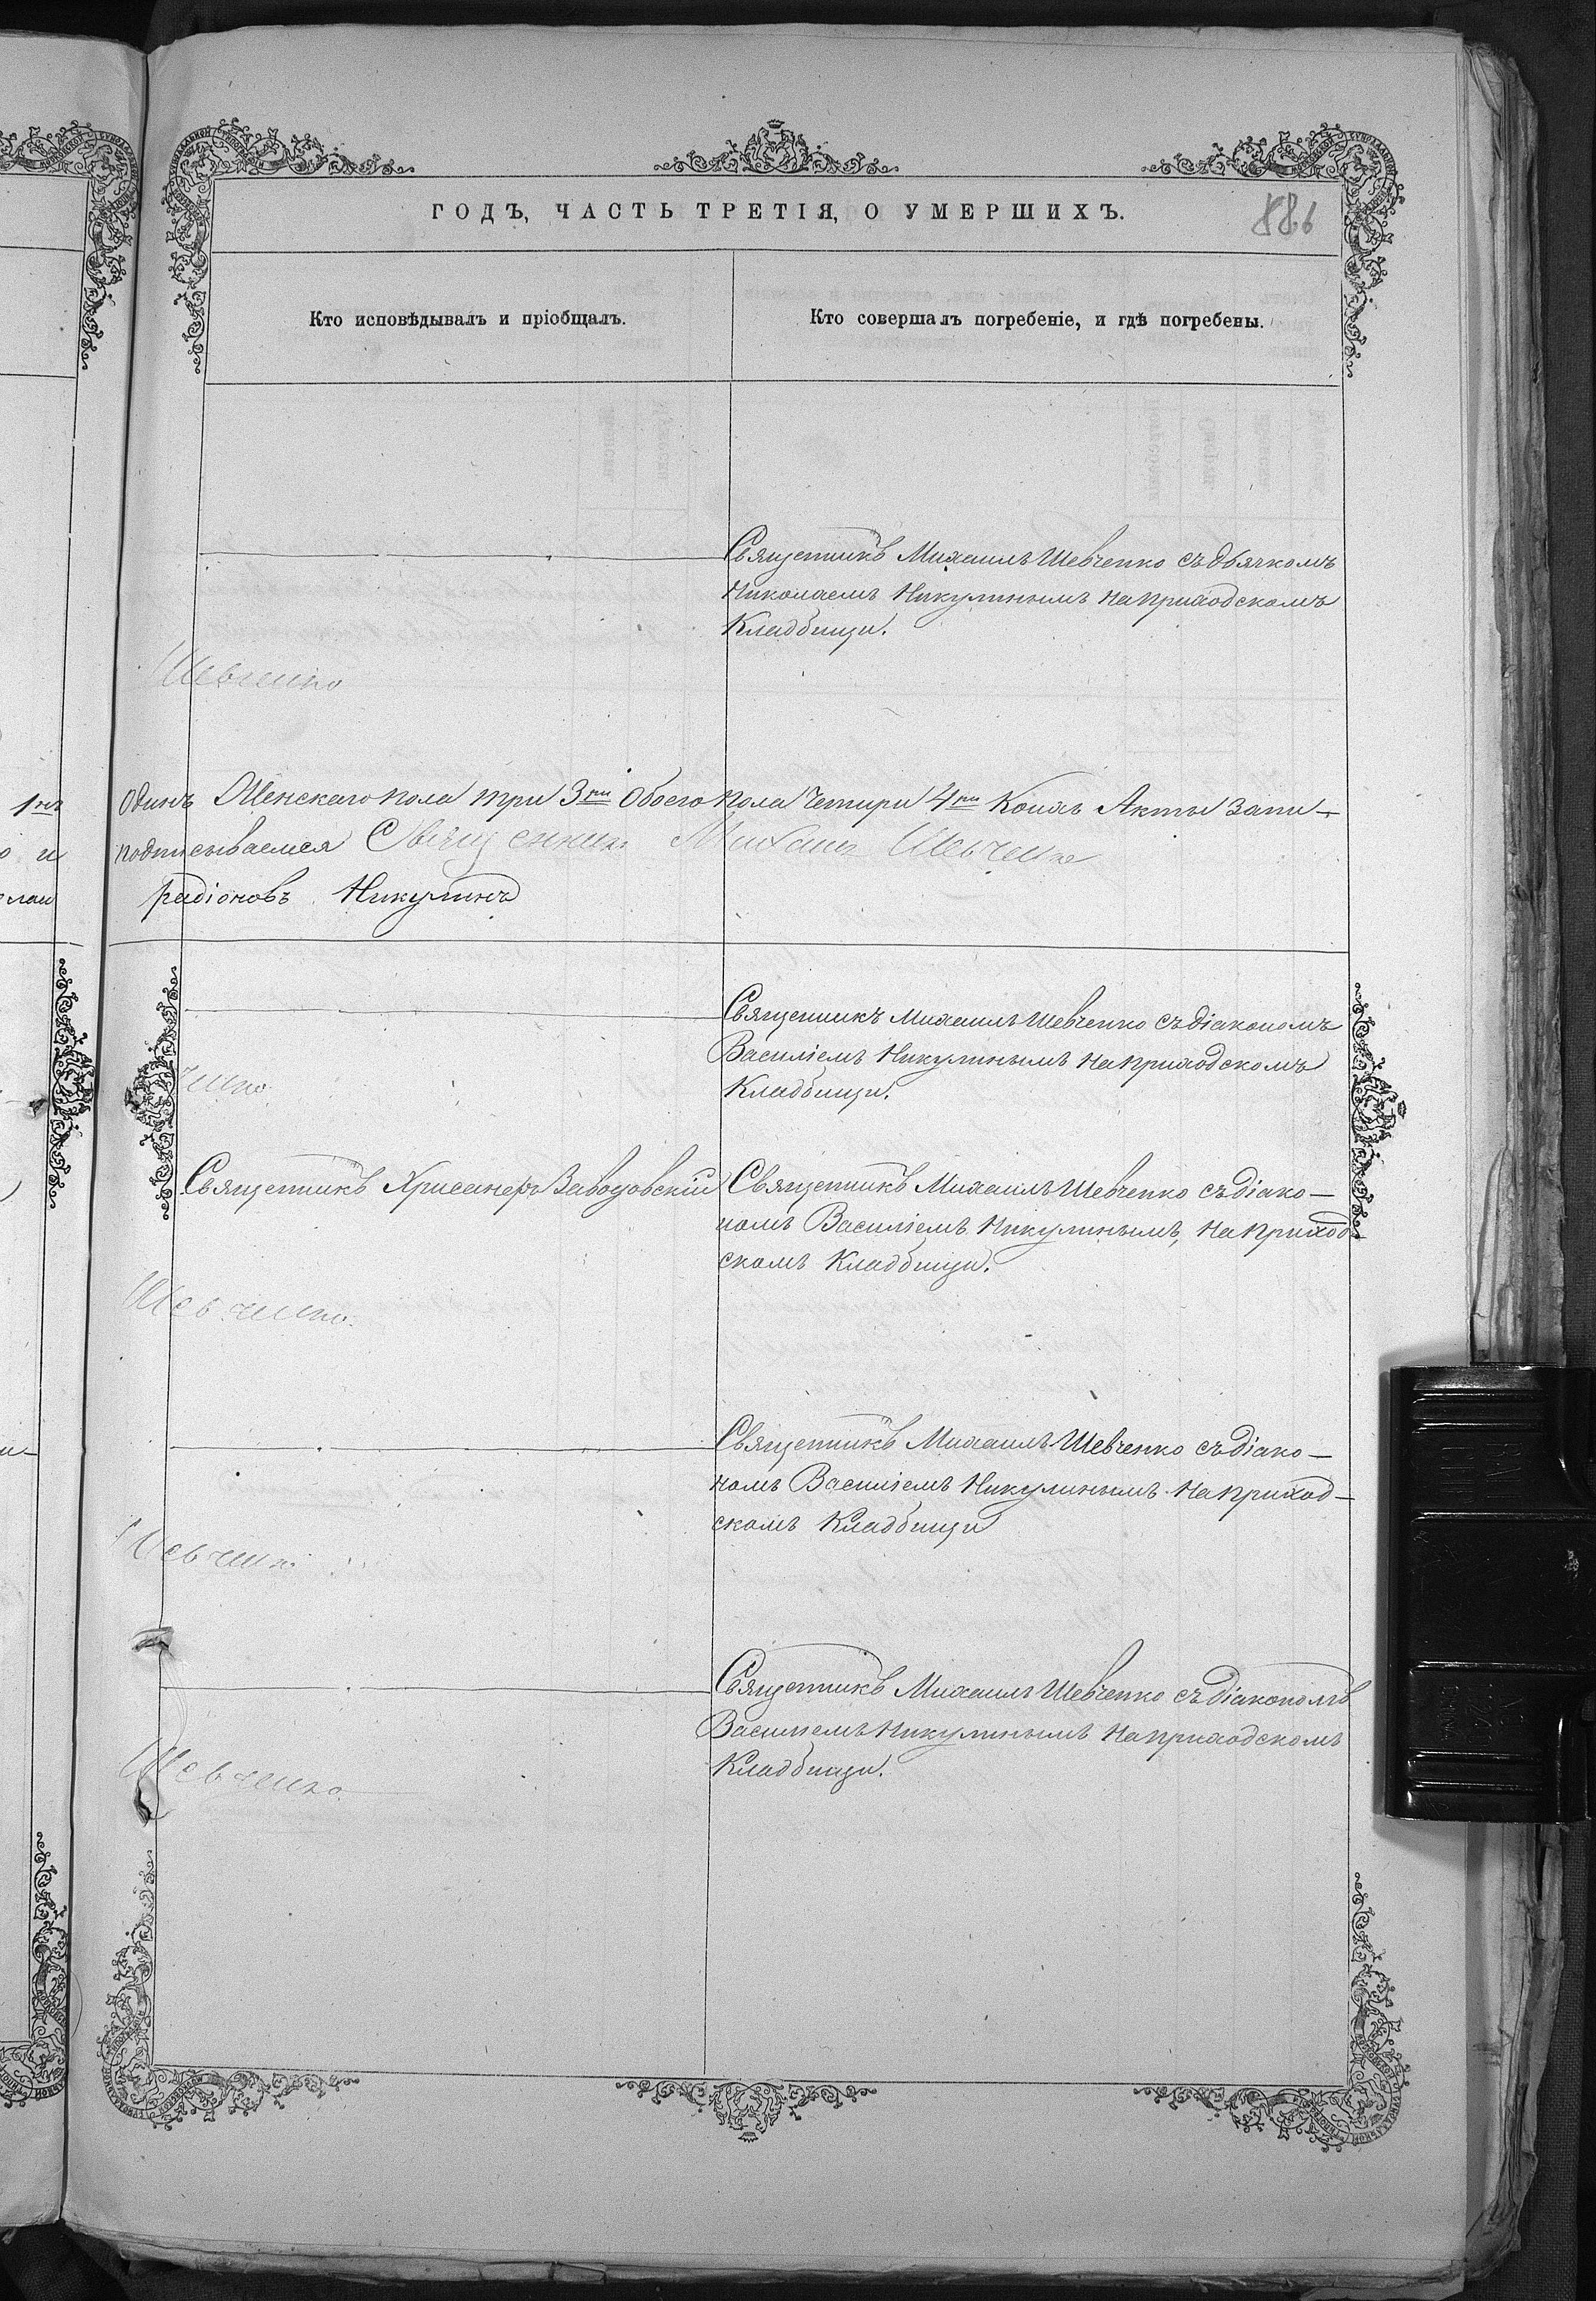 ГОДЪ, ЧАСТЬ ТРЕТІЯ, О УМЕРШИХЪ.
886
Кто исповѣдывалъ и пріобщалъ.
Кто совершалъ погребеніе, и гдѣ погребены.
Священникъ Михаилъ Шевченко съ дьячкомъ
Николаемъ Никулинымъ на приходскомъ
Кладбищи.
Шевченко
одинъ Женскаго пола три 3ри Обоего пола Четыри 4ри Коихъ Акты запи-
подписываемся Священникъ Михаилъ Шевченко
радіоновъ Никулинъ
Священникъ Михаилъ Шевченко съ діакономъ
Василіемъ Никулинымъ на приходскомъ
Кладбищи.
ченко
Священникъ Хрисанфъ Заводовскій
Священникъ Михаилъ Шевченко съ діако-
номъ Василіемъ Никулинымъ, на приход-
скомъ Кладбищи.
Шевченко.
Священникъ Михаилъ Шевченко съ діако-
номъ Василіемъ Никулинымъ на приход-
скомъ Кладбищи
Шевченко
Священникъ Михаилъ Шевченко съ діакономъ
Василіемъ Никулинымъ на приходскомъ
Кладбищи.
Шевченко.